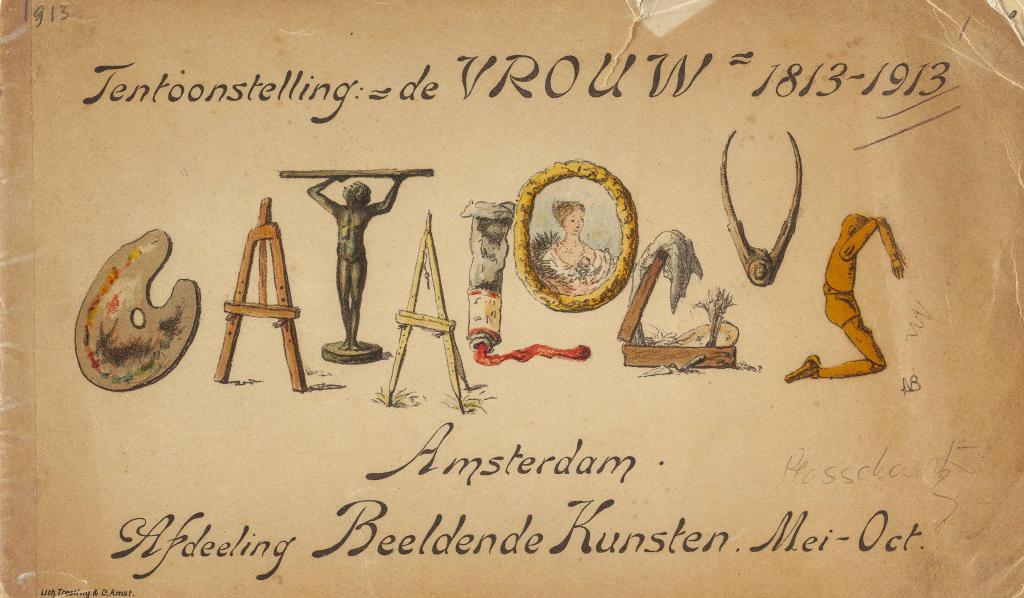 1913
Tentoonstelling: = de VROUW = 1813-1913
CATALOGUS
Amsterdam.
Afdeeling Beeldende Kunsten. Mei-Oct.
NB
Lith. Tresling & C. Amst.